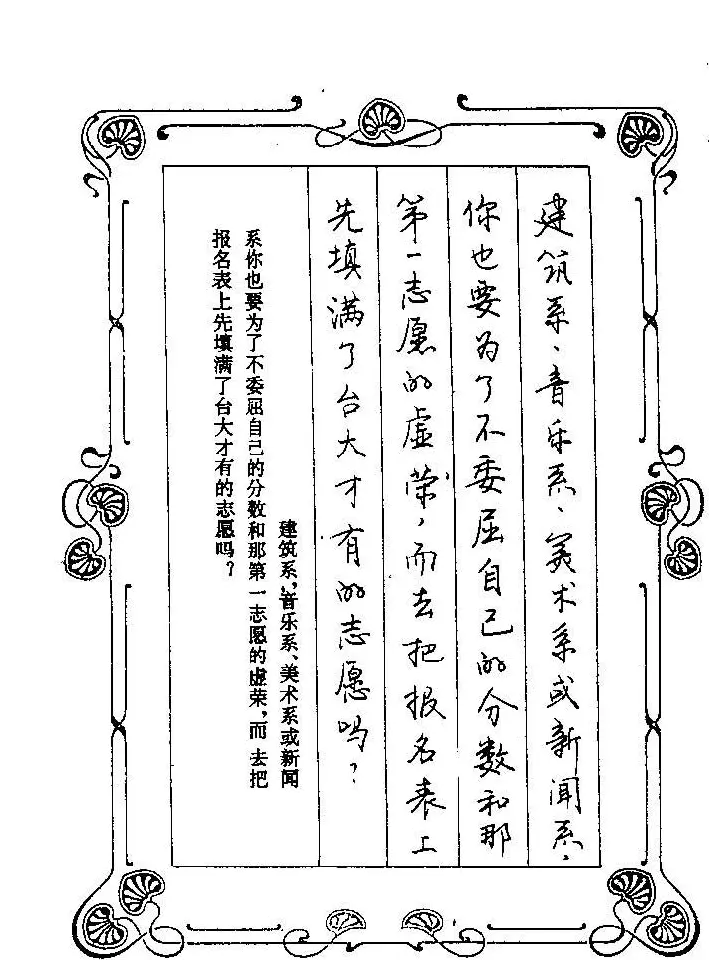 建筑系、音乐系、美术系或新闻系，
你也要为了不委屈自己的分数和那
第一志愿的虚荣，而去把报名表上
先填满了台大才有的志愿吗？
建筑系，音乐系、美术系或新闻
系你也要为了不委屈自己的分数和那第一志愿的虚荣，而去把
报名表上先填满了台大才有的志愿吗？